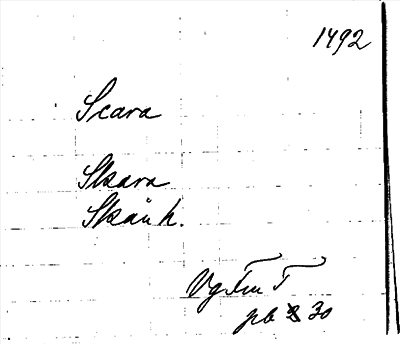 1492
Scara
Skara
Skån h.
Vg Fm T
pb 30